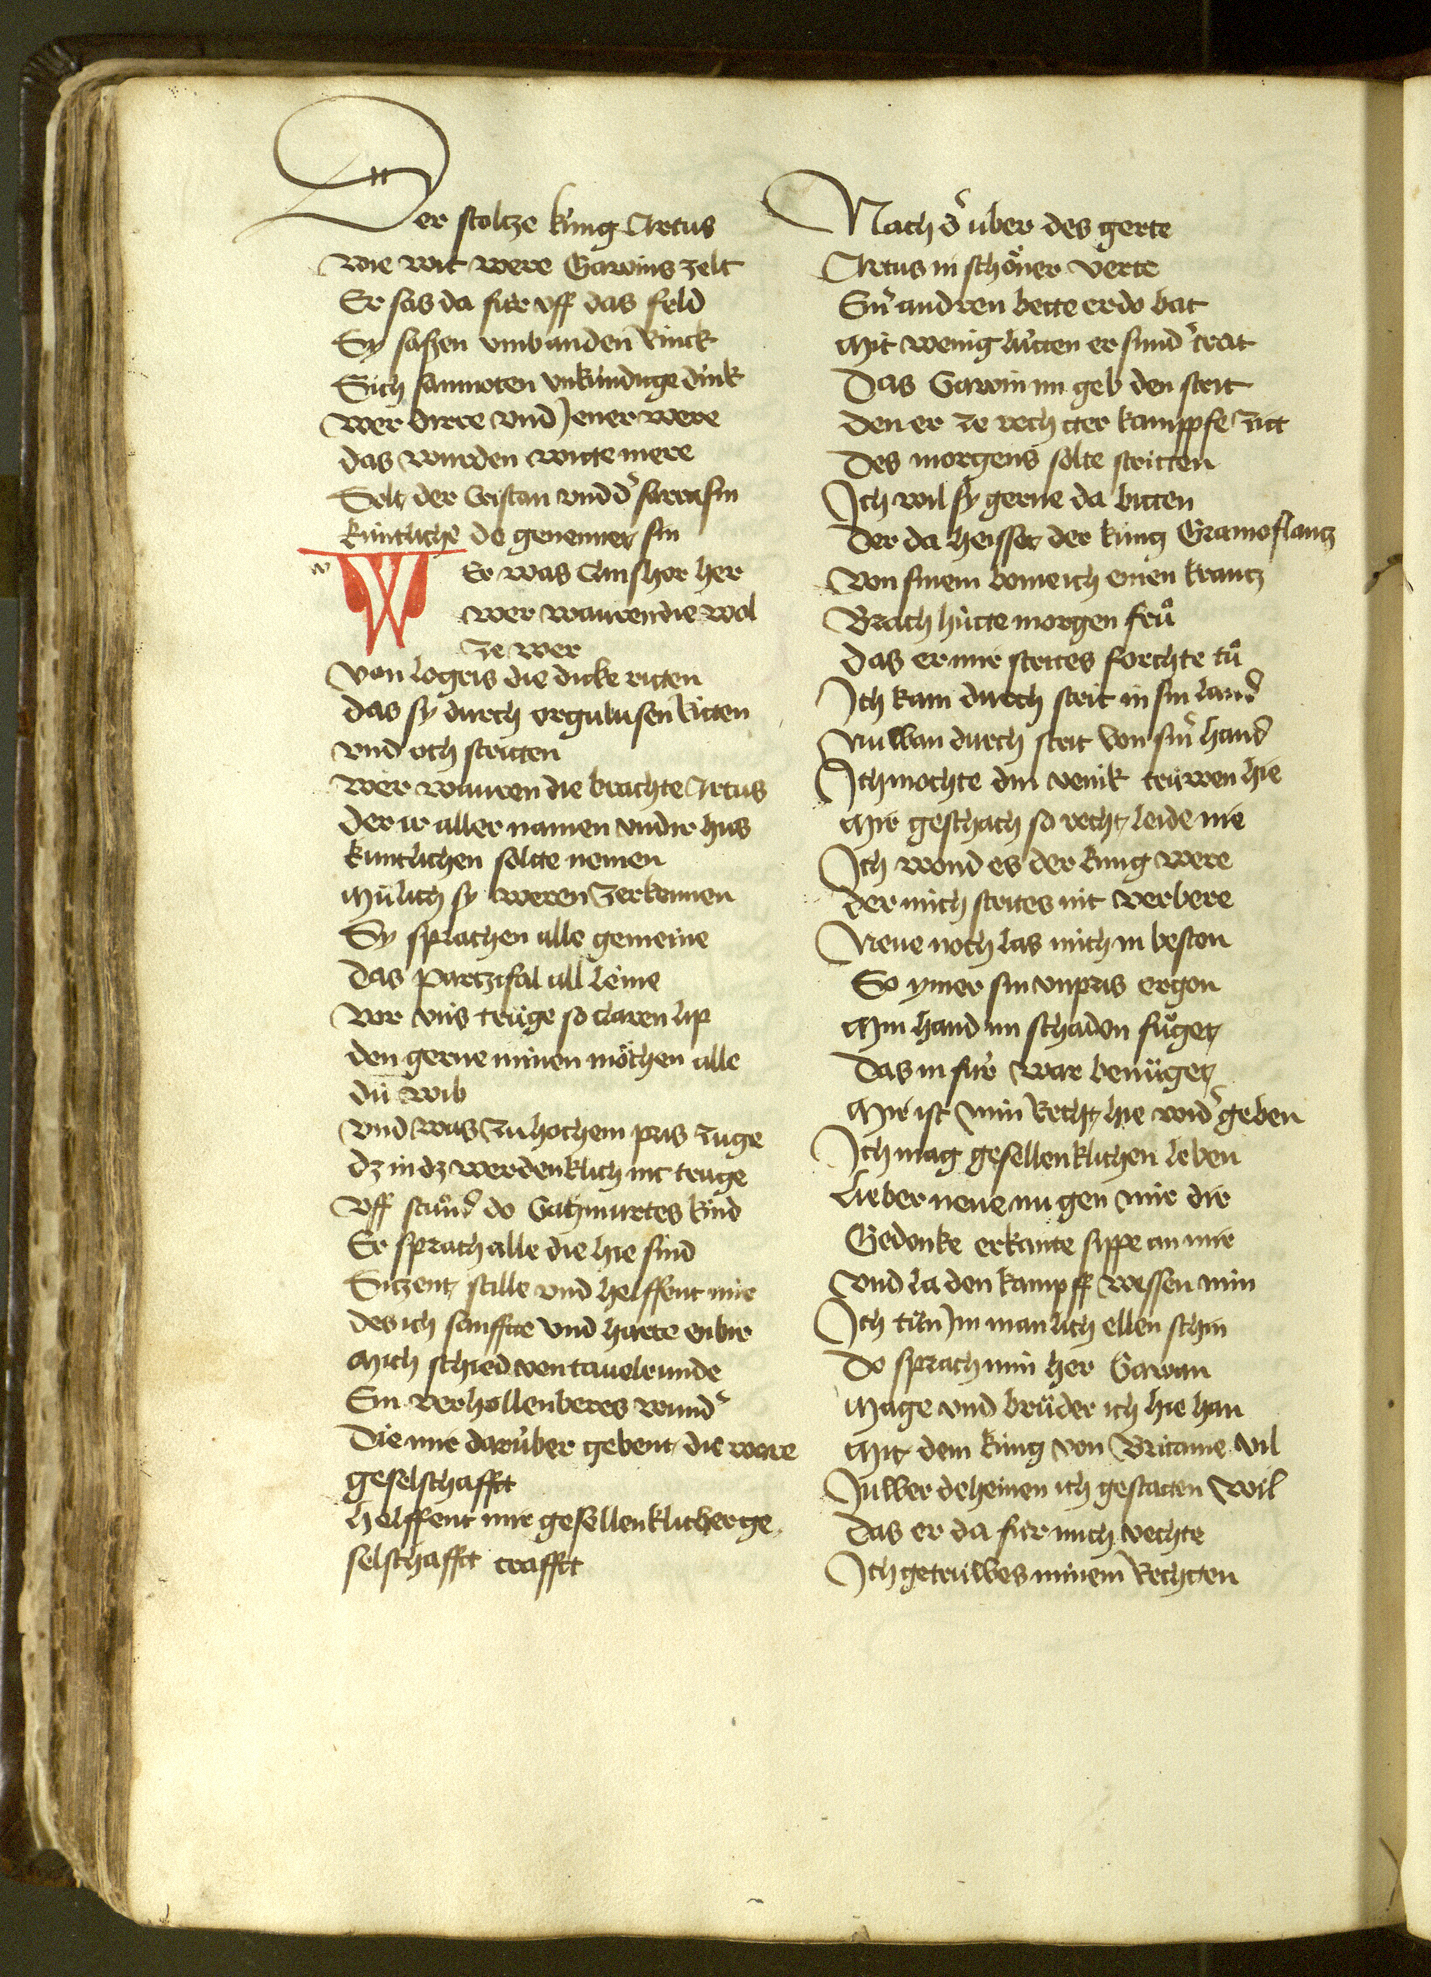 Der stoltze kúng Artus
wie wit were Gawins zelt
Er sas da fúr vff das feld
Sy sassen vmb an den Rinck
Sich samnoten vnkúndige dink
wer dirre vnd Jener were
das wurden wite mere
Solt der Cristan vnd d' sarrasin
kúntliche do genennet sin
w WEr was Clinshor her
wer wauren die wol
ze wer
von logris die dicke ritten
das sy durch orgulusen Ritten
vnd och stritten
wer wauren die brachte Artus
der ir aller namen vnd ir hus
kuntlichen soltte nemen
Múlich sy weren zerkennen
Sy sprachen alle gemeine
das Partzifal all leine
vor vns trúge so claren lip
den gerne minen móchen alle
dú wib
vnd was zu hochem pris zúge
dz in dz werdenklich nit truge
vff stuͦnd do Gahmurtes kind
Er sprach alle die hie sind
Sitzent stille vnd helffent mir
des ich sanffte vnd harte enbir
Mich schied von tauelrunde
Ein verhollenberes wund'
Die mir darúber gebent die ware
geselschafft
helffent mir gesellenklicher ge
selschafft crafft
Nach d' uber des gerte
Artus in schoͤner verte
Ein' andren bette er do bat
Mit wenig lútten er sund' trat
Das Gawin im geb den strit
den er ze rechtter kampffe zit
des morgens solte stritten
Ich wil sy gerne da bitten
Der da heisset der kúng Gramoflantz
von sinem bome ich einen krantz
Brach hútte morgen fruͦ
das er mir strites forchte tuͦ
Ich kam durch strit in sin land
Nu wan durch strit von sin' hand
Ich mochte din venik trúwen hie
Mir geschach so recht leide nie
Ich wond es der kúng were
der mich strites nit verbere
Neue noch las mich in beston
So ymer sin vnpris ergon
Min hand im schaden fuͤget
das in fúr war benúget
Mir ist min Recht hie wid' geben
Ich mag gesellenklichen leben
lieber neue nu gen mir dir
Gedenke erkante sippe an mir
vnd la den kampff wessen min
Ich tún Im manlich ellen schin
Do sprach min her Gawan
Mage vnd brúder ich hie han
Mit dem kúng von Britanie vil
Juwer deheinen ich gestatten wil
das er da fúr mich vechte
Ich getrúwes minem Rechtten